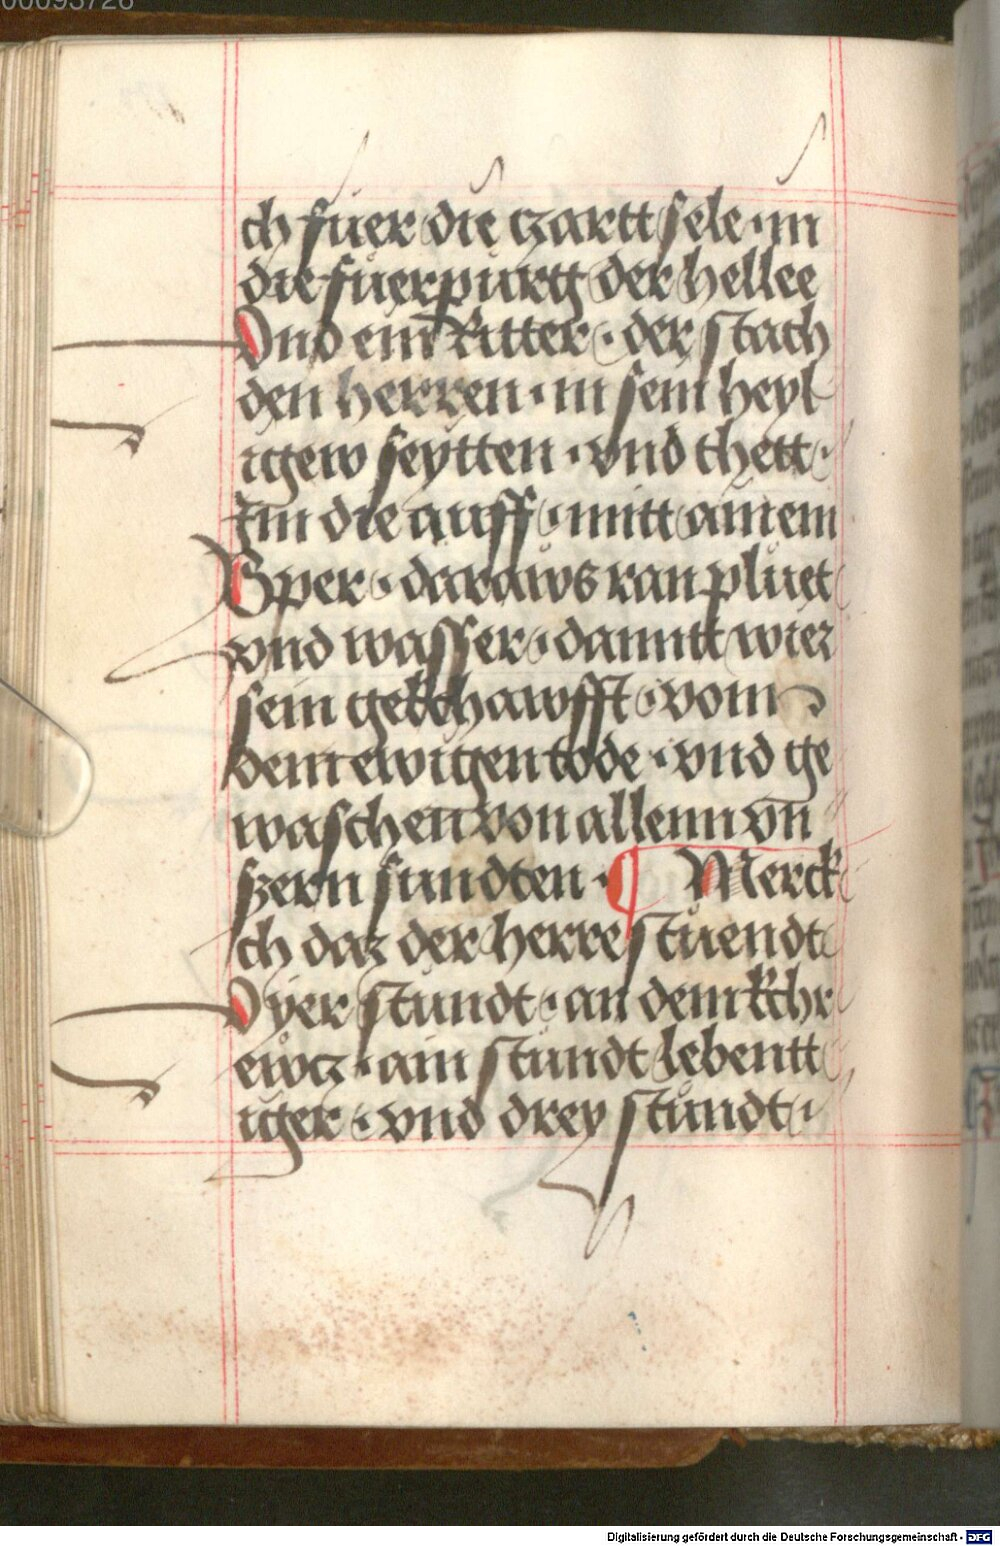 00093726
ch fuer die czartt sele · in
die fuerpurg der hellee
Vnd ein Ritter · der stach
den herren · in sein heyl
igew seytten · vnd thett ·
Im die auff · mitt ainem
Sper · darawß ran pluet
vnd wasser · damitt wier
sein gekchawfft · vom
dem ewigen tode · vnd ge
waschen von allenn vn̄
szern sundten · Merck
ch daz der herre stuendt
Vyer stundt · an dem kchr
ewcz · ain stundt lebentt
iger · vnd drey stundt ·
Digitalisierung gefördert durch die Deutsche Forschungsgemeinschaft - DFG